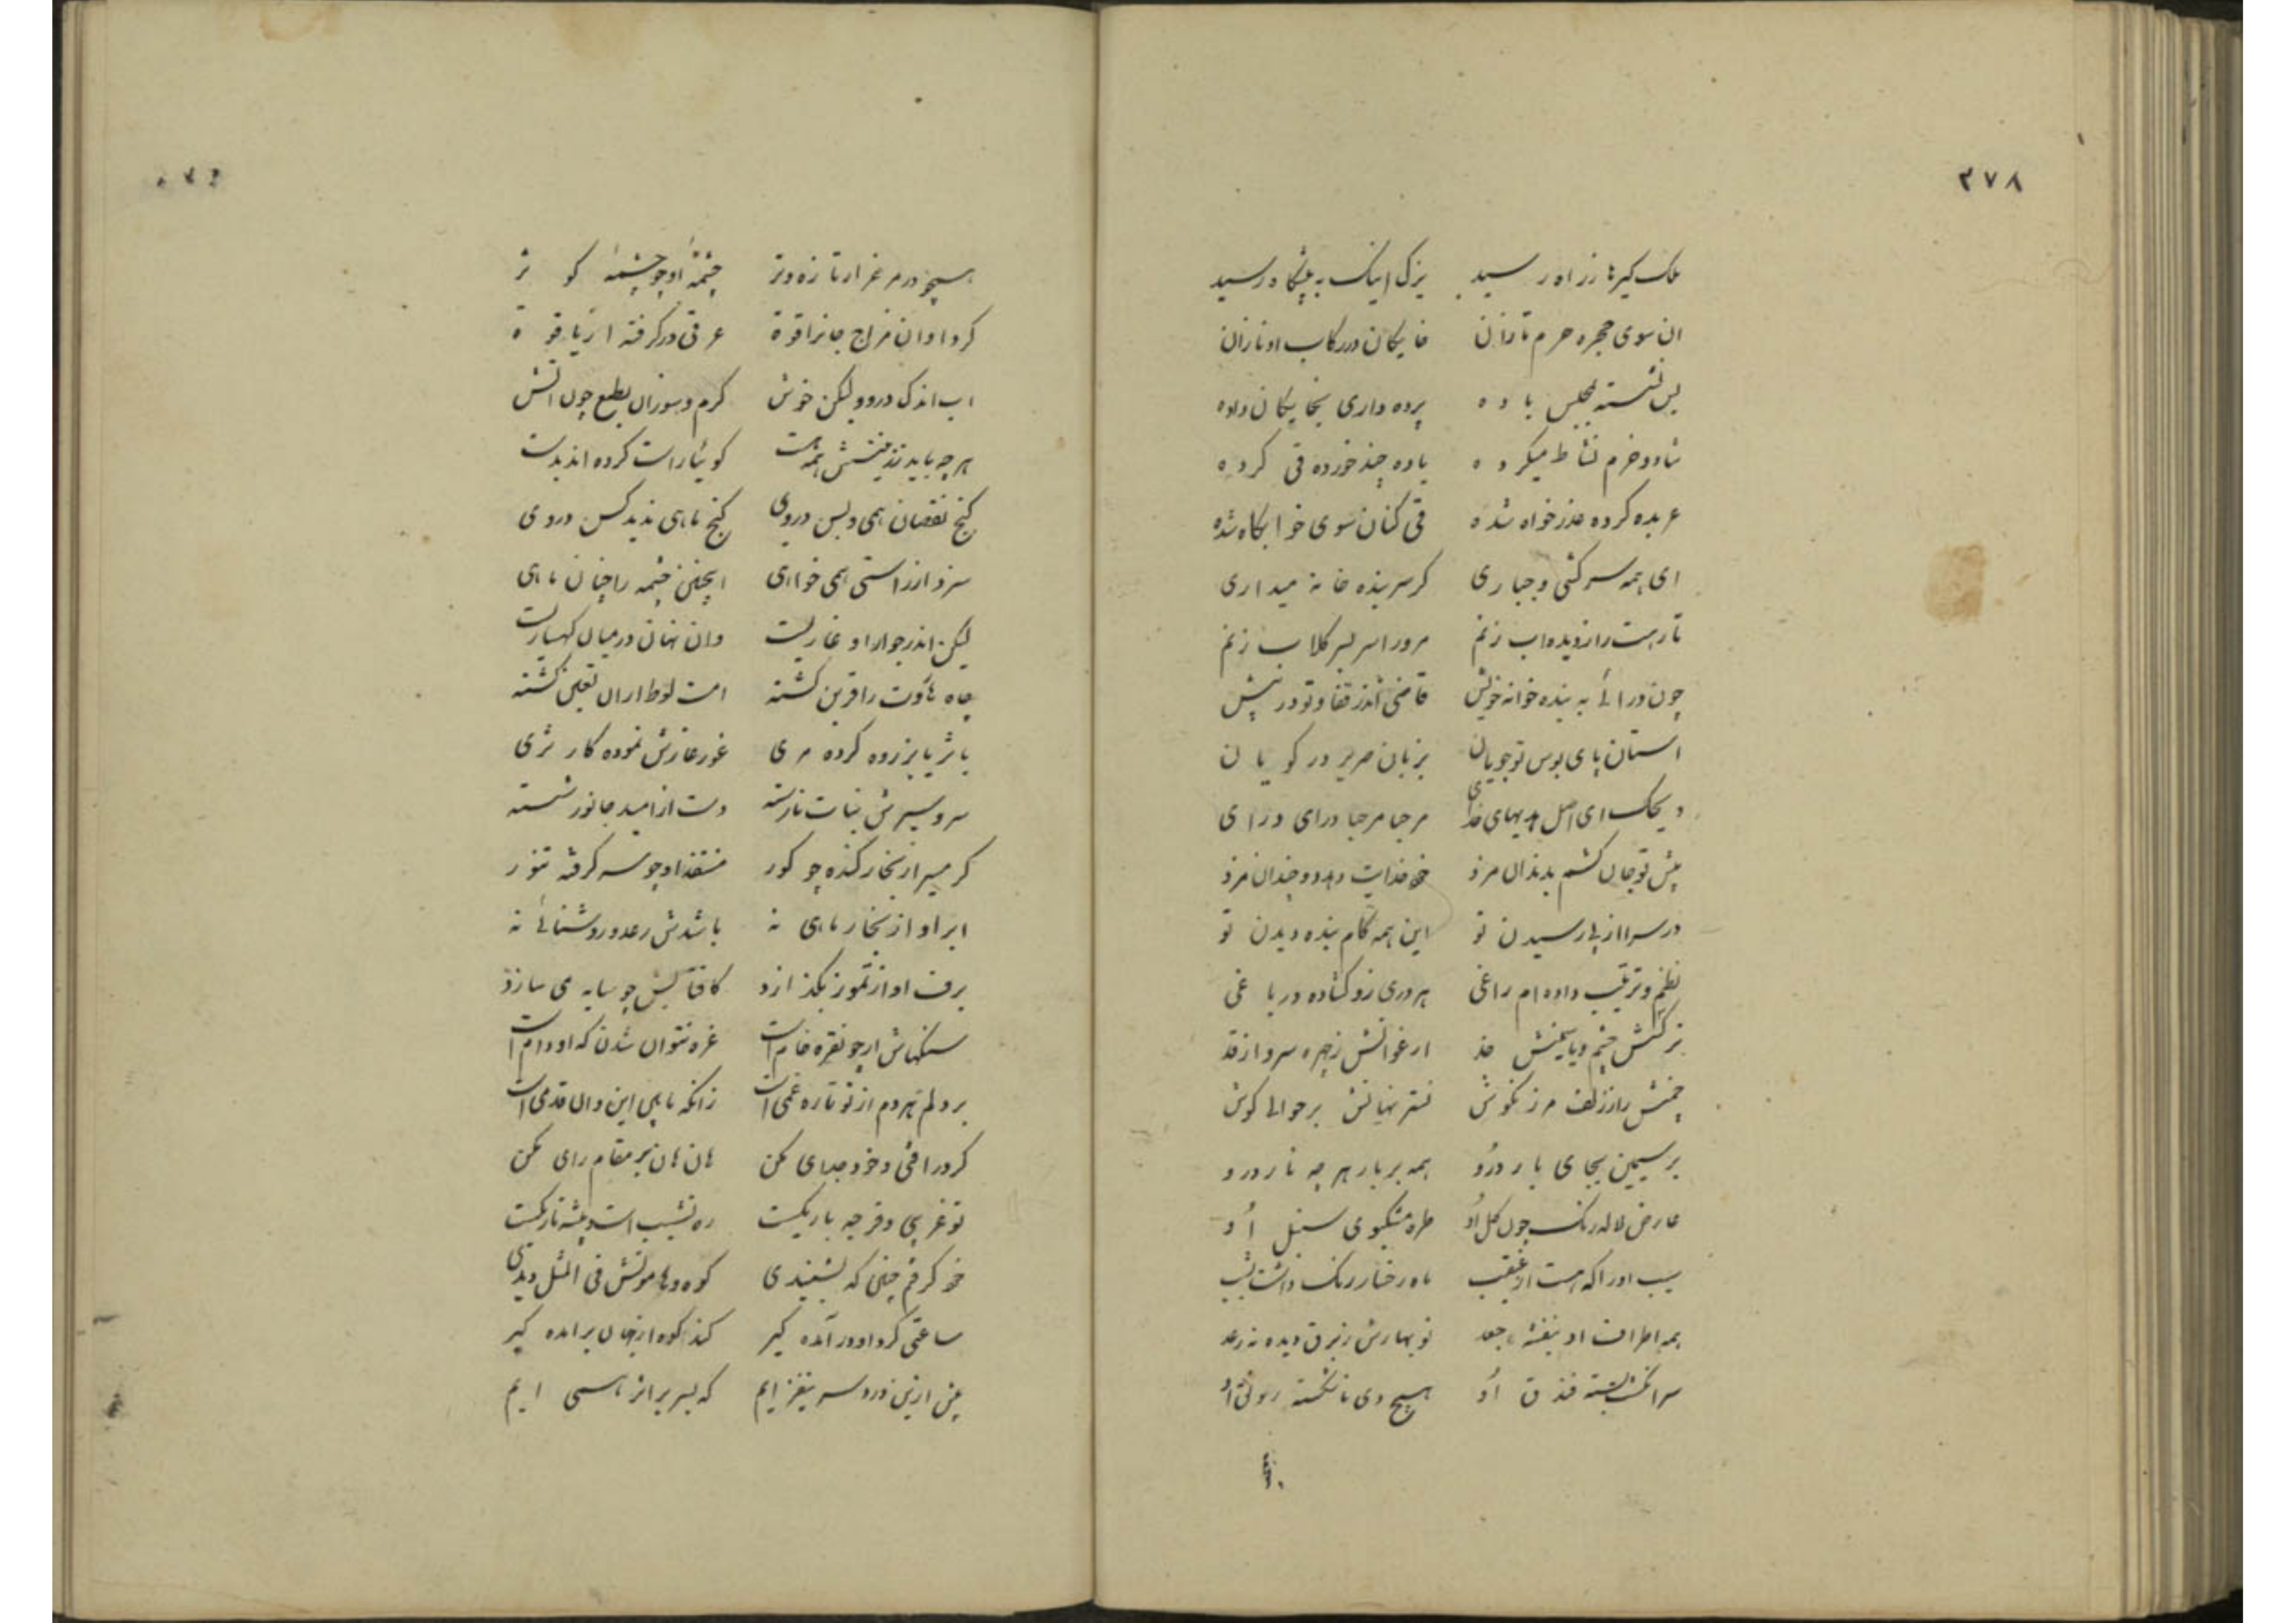 ۳۷۸
ملک کیرنا زراه رسید یزک اینک به پیشکاه رسید
ان سوی حجره حرم تازان خایکان در رکاب او نازان
پس نشسته بمجلس باده پرده داری بخایکان داده
شاد و خرم نشاط میکرده باده چند خورده قی کرده
عربده کرده عذر خواه شده قی کنان سوی خوابکاه شده
ای همه سرکشی و جباری کر سر بنده خانه میداری
تا رهت را ز دیده اب زنم مرورا سر بسر کلاب زنم
چون درائی به بنده خانه خویش قاضی اندر قفا و تو در پیش
استان پای بوس تو جویان بزبان صریر در کویان
ویحک ای اصل هدیهای خدای مرحبا مرحبا درای درای
پیش تو جان کشم بدندان مزد خود خدایت دهد دو چندان مزد
در سرا از پی رسیدن تو این همه کام بنده دیدن تو
نظم و ترتیب داده ام راغی هر دری زو کشاده در باغی
نرکسش چشم و یاسمنش خد ارغوانش ز چهره سرو از قد
چمنش را ز زلف مرزنکوش نسترنهاش بر حوالی کوش
بر سیمین بجای بار درو همه بر بار هر چه نار درو
عارض لاله رنک چون کل او طره مشکبوی سنبل او
سیب او را که هست از غبغب ماه رخسار رنک داشت بشب
همه اطراف او بنفشه جعد نوبهارش ز برق دیده نه رعد
سر انکشت بسته فندق او هیچ دی ناشکسته رونق او
همچو در مرغزار تازه و تر چشمه او چو چشمه کوثر
کرد او ان مزاج جانرا قوة عرقی در کرفته از یاقوة
اب اندک درو ولیکن خوش کرم و سوزان بطبع چون اتش
هر چه باید ز نیستش همه هست کوئیا راست کرده اند بدست
کنج نقصان همی و بس در وی کنج ماهی ندید کس در وی
سزد ار راستی همی خواهی اینچنین چشمه را چنان ماهی
لیکن اندر جوار او غاریست وان نهان در میان کهساریست
چاه هاروت را قرین کشته امت لوط ازان لعین کشته
با ثریا بزر وه کرده مری غور غارش نموده کار ثری
سر و سیرش نبات نارسته دست از امید جانور شسته
کرمسیر از بخار کنده چو کور منفذ او چو سر کرفته تنور
ابر او از بخار ماهی نه باشدش رعد و روشنائی نه
برف او از تموز نکذارد کافتابش چو سایه می سازد
سنکهاش ار چو نقره خام است غره نتوان شدن که او دام است
بر دلم هر دم از تو تازه غمی است زانکه ما بین این و ان قدمی است
کر در افتی و خرد جدای مکن هان هان بر مقام رای مکن
تو غریبی و فرجه باریکست ره نشیب است و بیشه تاریکست
خود کرفتم چنین که بشنیدی کوه و هامونش فی المثل دیدی
ساعتی کرد او در آمده کیر کند کوه از نهان برامده کیر
پیش ازین درد سر نیفزایم که بسر بر اثر همی ایم